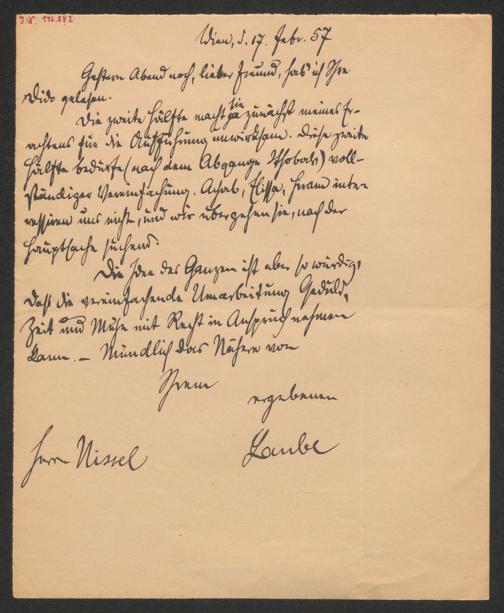 I.N. 142.882
Wien, d. 17. Febr. 57
Gestern Abend noch, lieber Freund, hab' ich Ihre
Dido gelesen.
Die zweite Hälfte macht sie zunächst meines Er-
achtens für die Aufführung unwirksam. Diese zweite
Hälfte bedürfte (nach dem Abgange Ithobals) voll-
ständiger Vereinfachung. Achab, Elissa, Hiram inte-
ressiren uns nicht, und wir übergehen sie, nach der
Hauptsache suchend.
Die Idee des Ganzen ist aber so würdig,
daß die vereinfachende Umarbeitung Geduld,
Zeit und Muße mit Recht in Anspruch nehmen
kann. – Mündlich das Nähere von
Ihrem
ergebenen
Laube
Herrn Nissel